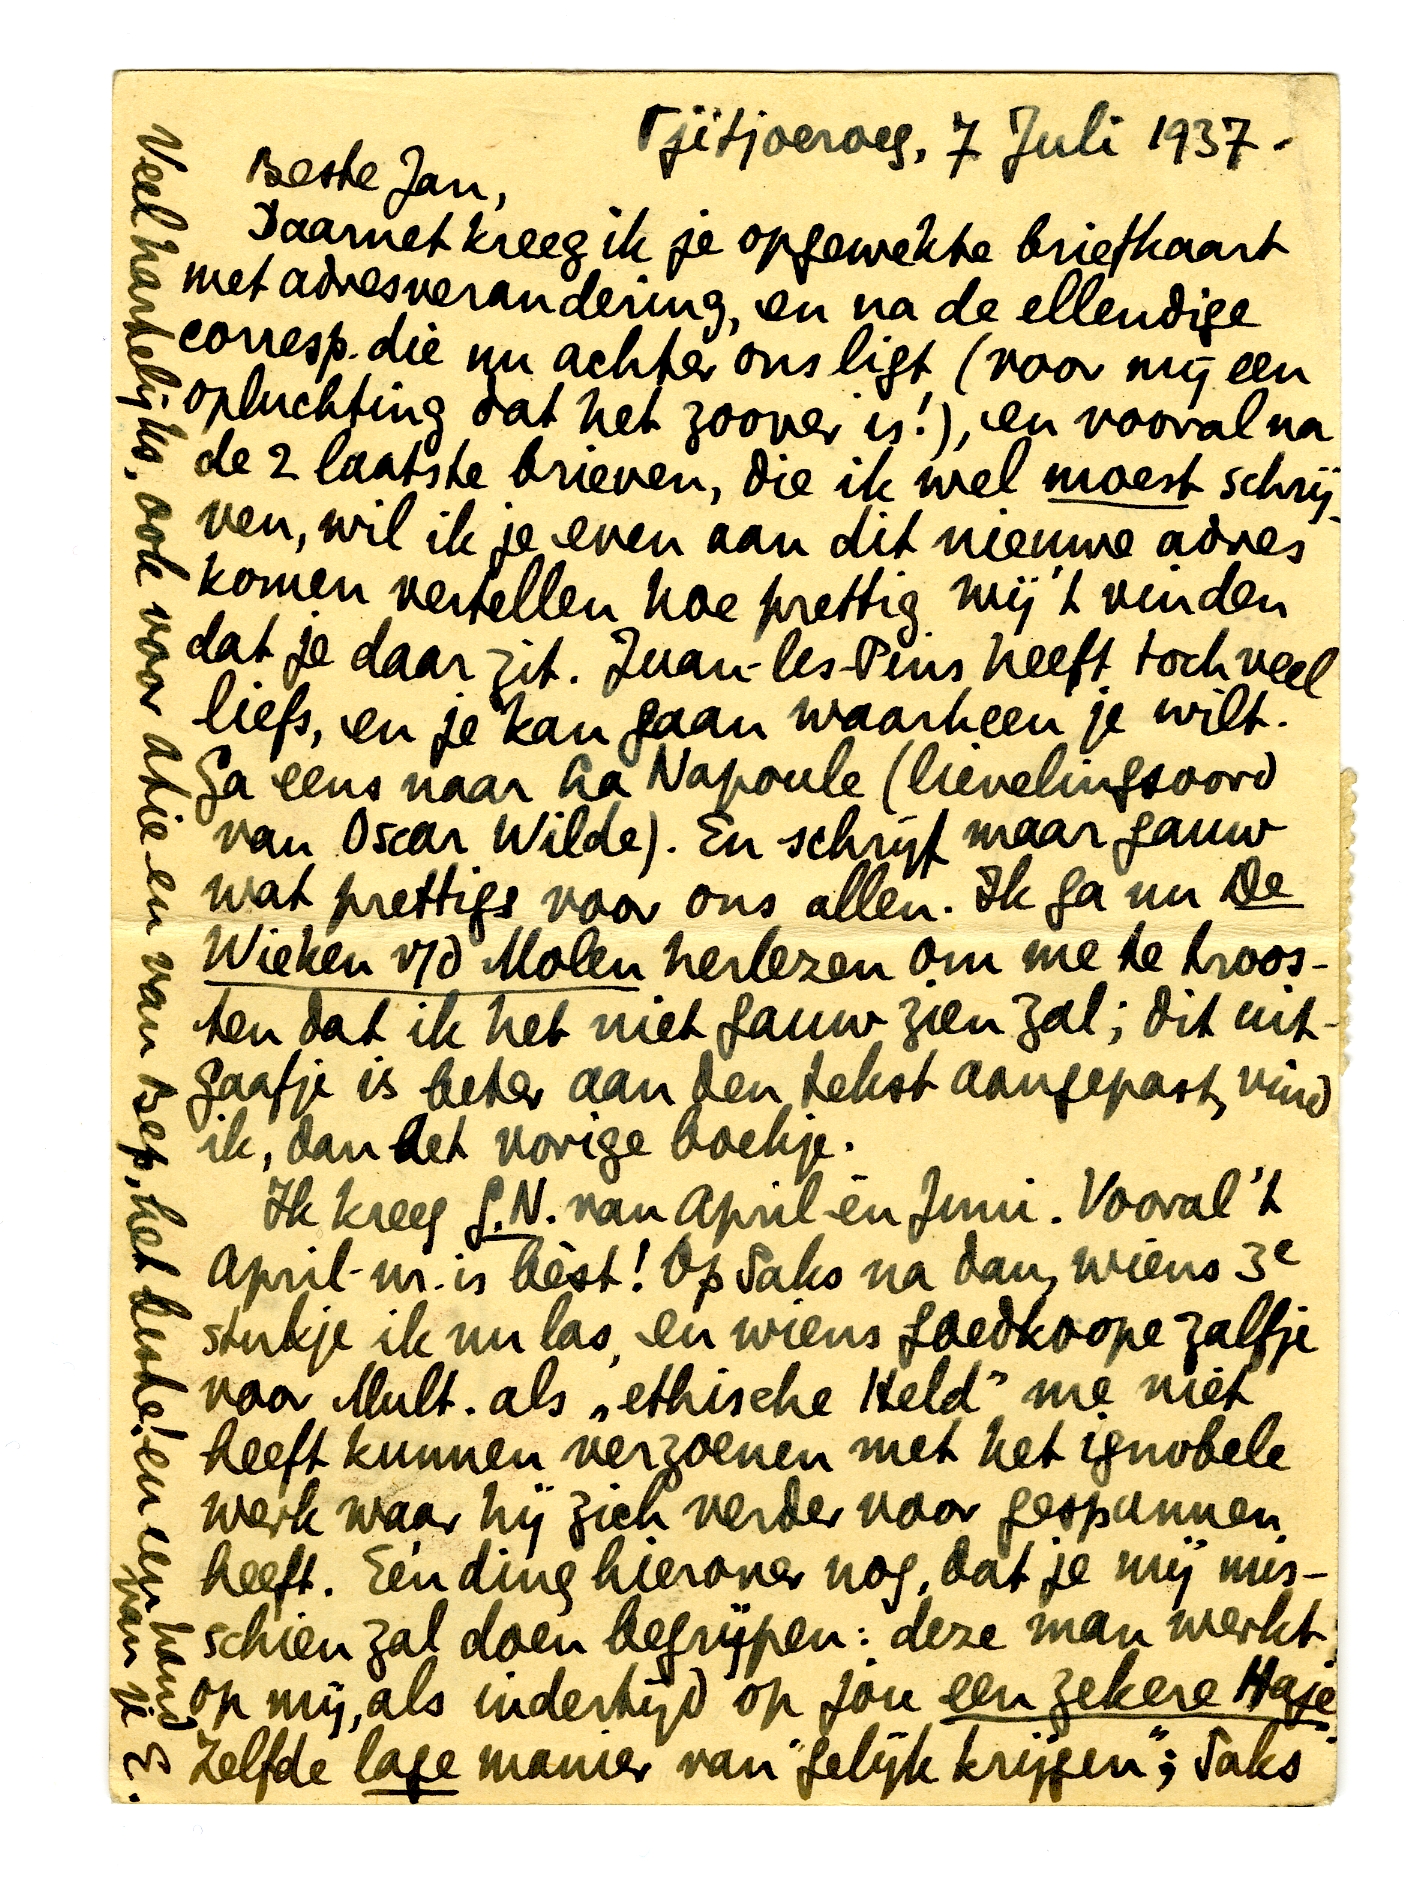 Tjitjoeroeg, 7 Juli 1937.
Beste Jan,
Daarnet kreeg ik je opgewekte briefkaart
met adresverandering, en na de ellendige
corresp. die nu achter ons ligt (voor mij een
opluchting dat het zoover is!), en vooral na
de 2 laatste brieven, die ik wel moest schrij-
ven, wil ik je even aan dit nieuwe adres
komen vertellen hoe prettig wij 't vinden
dat je daar zit. Juan-les-Pins heeft toch veel
liefs, en je kan gaan waarheen je wilt.
Ga eens naar La Napoule (lievelingsoord
van Oscar Wilde). En schrijf maar gauw
wat prettigs voor ons allen. Ik ga nu De
Wieken v/d Molen herlezen om me te troos-
ten dat ik het niet gauw zien zal; dit uit-
gaafje is beter aan den tekst aangepast, vind
ik, dan het vorige boekje.
Ik kreeg G.N. van April èn Juni. Vooral 't
April-nr. is bèst! Op Saks na dan, wiens 3e
stukje ik nu las, en wiens goedkoope zalfje
voor Mult. als „ethische Held" me niet
heeft kunnen verzoenen met het ignobele
werk waar hij zich verder voor gespannen
heeft. Eén ding hierover nog, dat je mij mis-
schien zal doen begrijpen: deze man werkt
op mij, als indertijd op jou een zekere Haje
Zelfde lage manier van "gelijk krijgen"; Saks
Veel hartelijks, ook voor Atie en van Bep, het beste! en een hand
van je E.